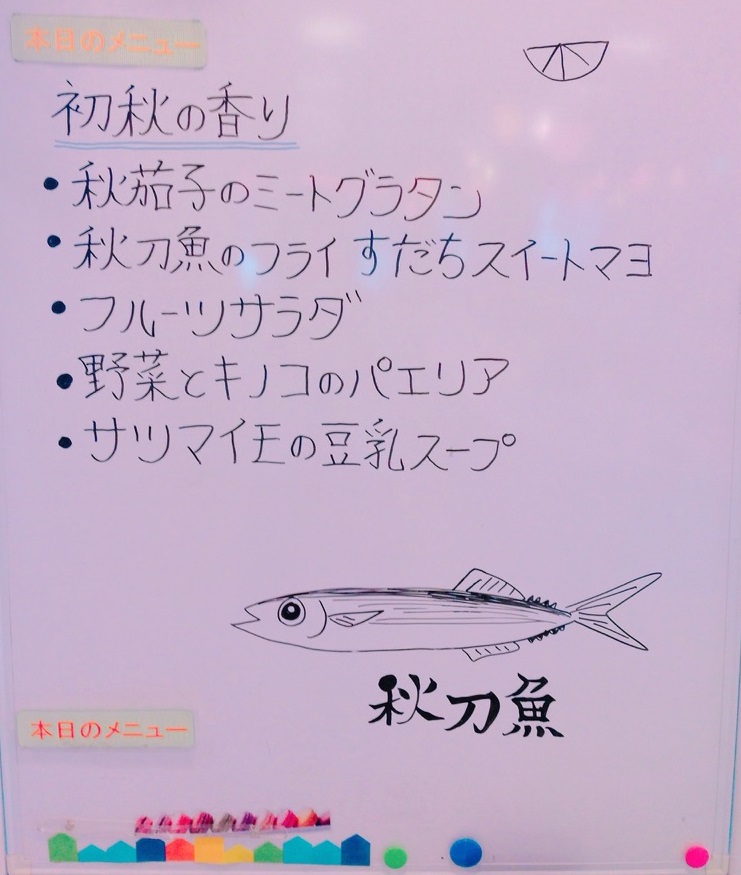 本日のメニュー
初秋の香り
・秋茄子のミートグラタン
・秋刀魚のフライ すだちスイートマヨ
・フルーツサラダ
・野菜とキノコのパエリア
・サツマイモの豆乳スープ
秋刀魚
本日のメニュー